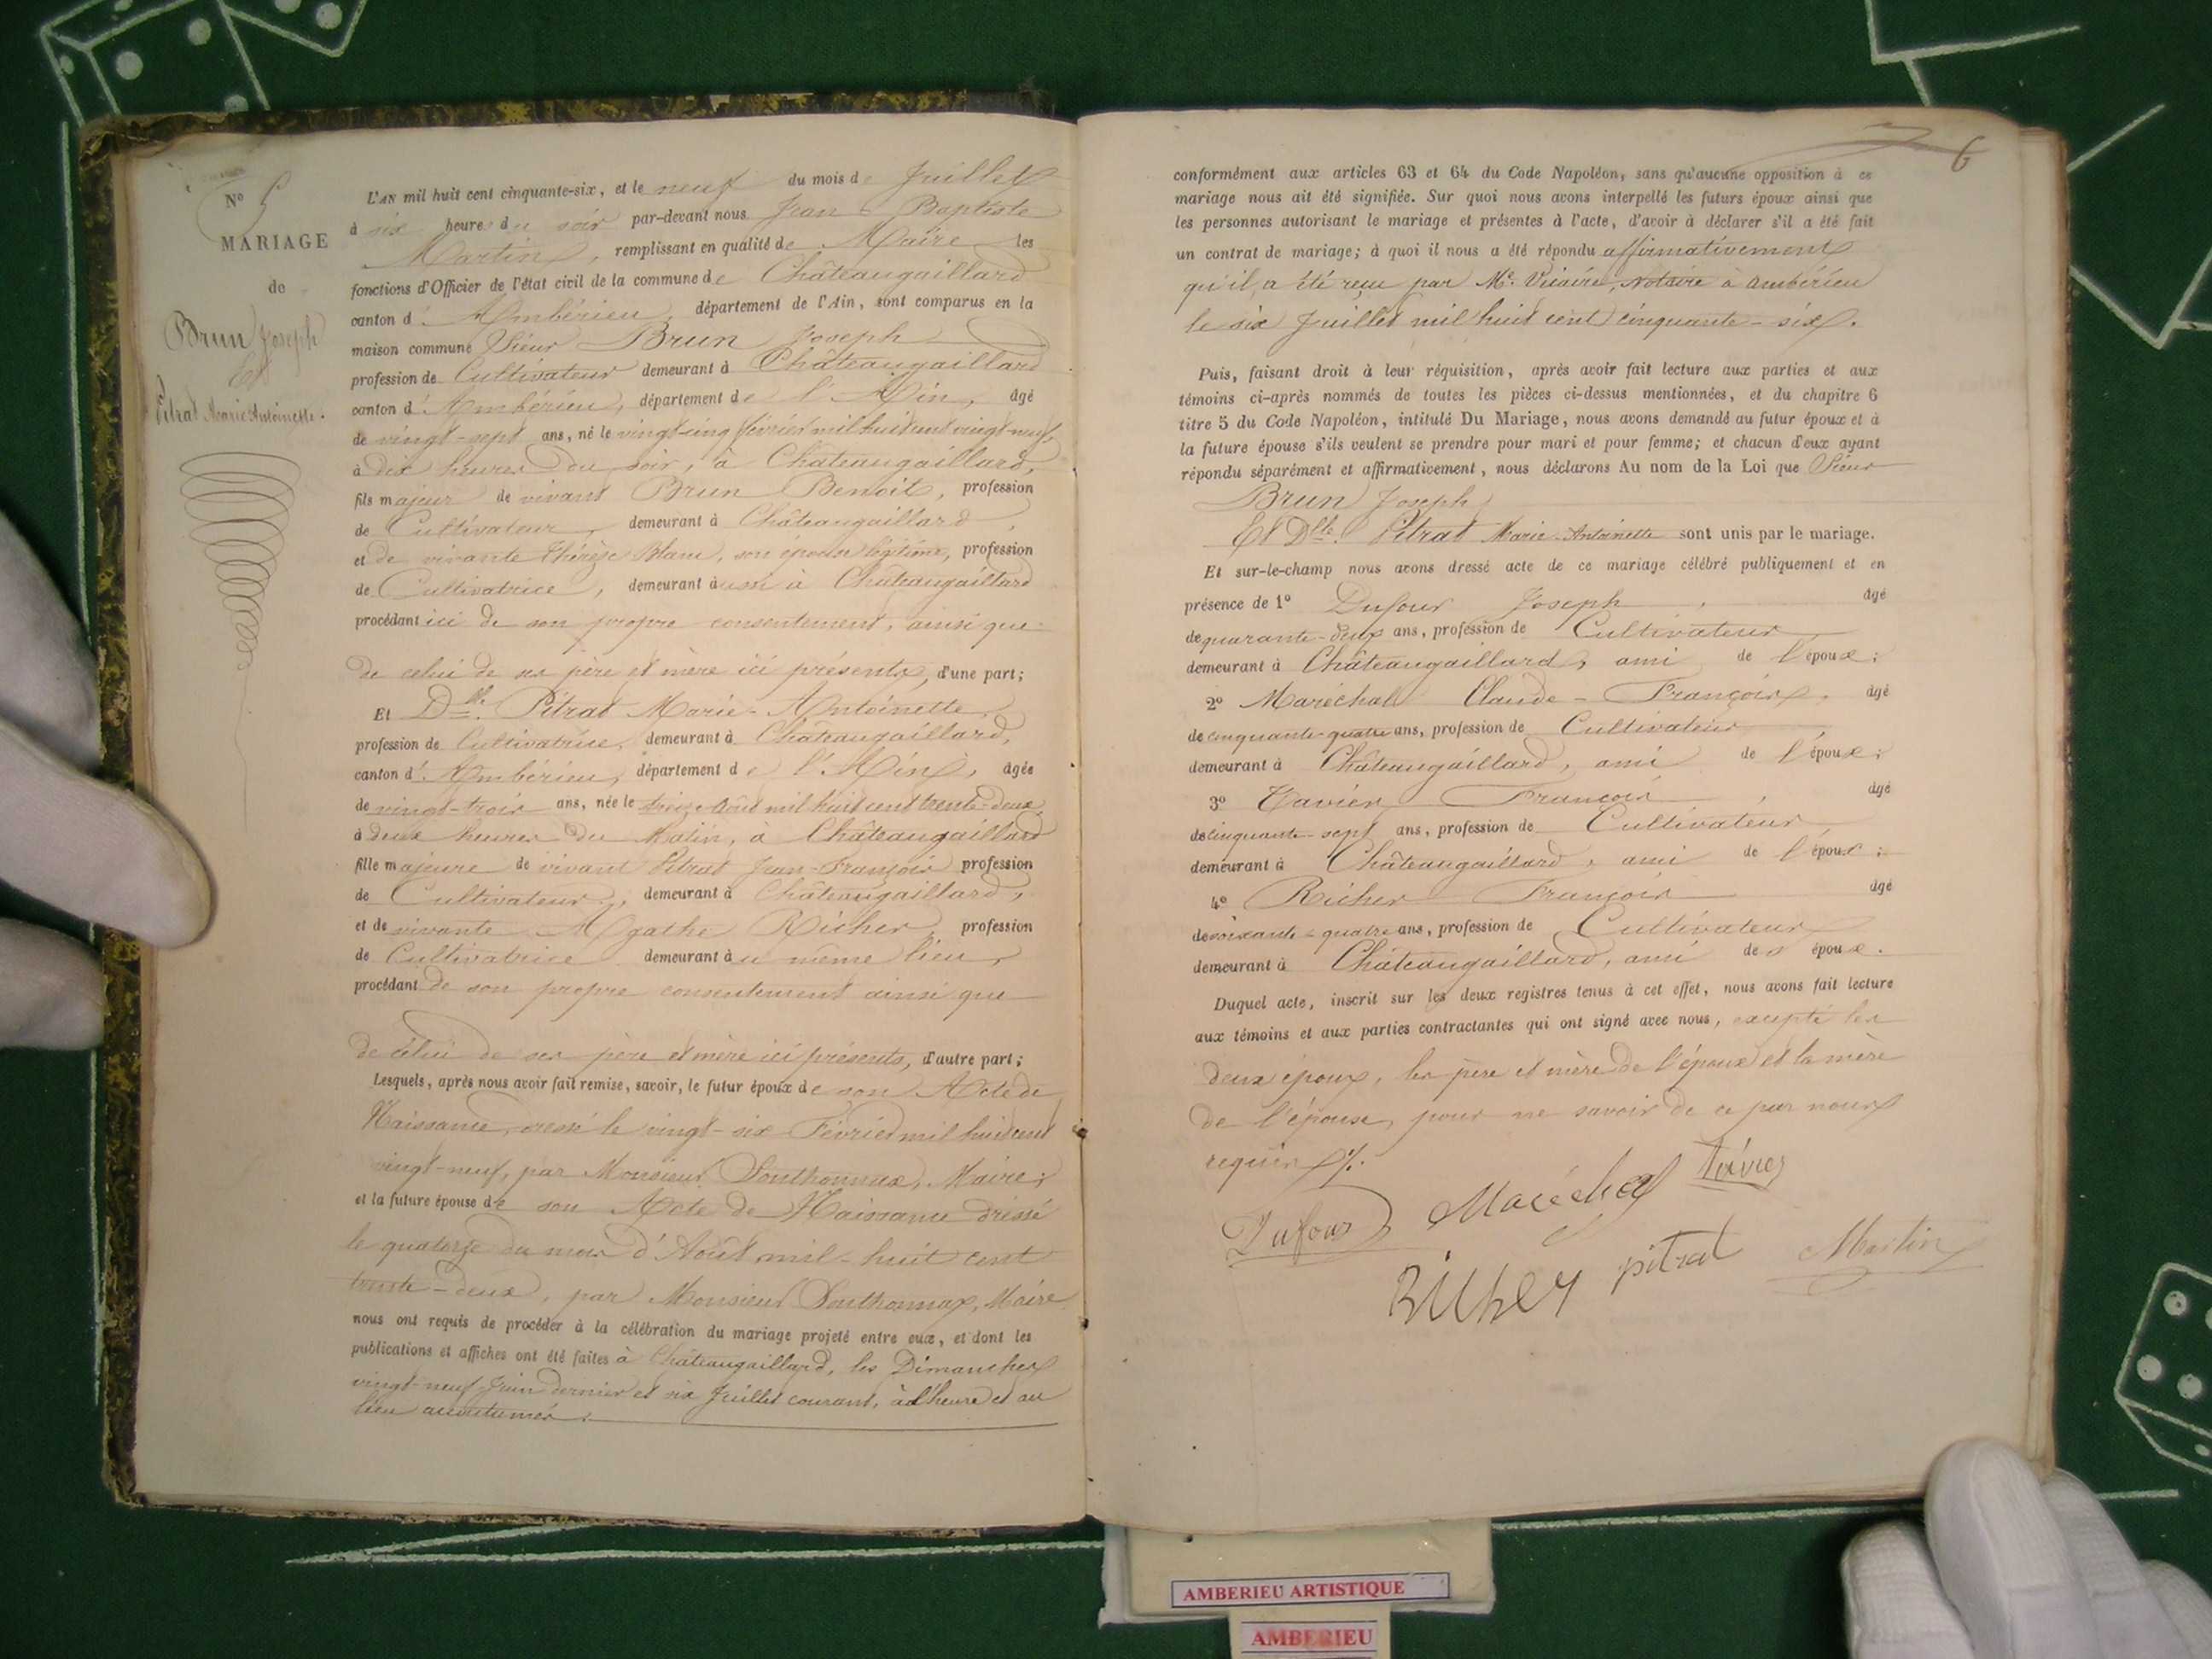 N° 5
MARIAGE
de
Brun Joseph
Et
Pitrat Marie Antoinette.
L'AN mil huit cent cinquante-six, et le neuf du mois de Juillet
à six heures du soir par-devant nous Jean-Baptiste
Martin, remplissant en qualité de Maire les
fonctions d'Officier de l'état civil de la commune de Châteaugaillard
canton d'Ambérieu, département de l'Ain, sont comparus en la
maison commune Sieur Brun Joseph
profession de Cultivateur demeurant à Châteaugaillard
canton d'Ambérieu, département de l'Ain, âgé
de vingt-sept ans, né le vingt-cinq février mil huit cent vingt-neuf,
à dix heures du soir, à Châteaugaillard,
fils majeur de vivant Brun Benoit, profession
de Cultivateur, demeurant à Châteaugaillard,
et de vivante Thérèze Blanc, son épouse légitime, profession
de Cultivatrice, demeurant aussi à Châteaugaillard
procédant ici de son propre consentement, ainsi que
de celui de ses père et mère ici présents, d'une part;
Et Dlle. Pitrat Marie-Antoinette,
profession de Cultivatrice, demeurant à Châteaugaillard,
canton d'Ambérieu, département de l'Ain, âgée
de vingt-trois ans, née le treize Août mil huit cent trente-deux,
à deux heures du Matin, à Châteaugaillard
fille majeure de vivant Pitrat Jean-François profession
de Cultivateur, demeurant à Châteaugaillard,
et de vivante Agathe Richer, profession
de Cultivatrice demeurant au même lieu,
procédant de son propre consentement ainsi que
de celui de ses père et mère ici présents, d'autre part;
Lesquels, après nous avoir fait remise, savoir, le futur époux de son Acte de
Naissance, dressé le vingt-six Février mil huit cent
vingt-neuf, par Monsieur Southonnax, Maire;
et la future épouse de son Acte de Naissance dressé
le quatorze du mois d'Août mil-huit cent
trente-deux, par Monsieur Southonnax, Maire
nous ont requis de procéder à la célébration du mariage projeté entre eux, et dont les
publications et affiches ont été faites à Châteaugaillard, les Dimanches
vingt-neuf Juin dernier et six Juillet courant, à l'heure et au
lieu accoutumés.
6
conformément aux articles 63 et 64 du Code Napoléon, sans qu'aucune opposition à ce
mariage nous ait été signifiée. Sur quoi nous avons interpellé les futurs époux ainsi que
les personnes autorisant le mariage et présentes à l'acte, d'avoir à déclarer s'il a été fait
un contrat de mariage; à quoi il nous a été répondu affirmativement
qu'il a été reçu par Me. Vicaire, Notaire à Ambérieu
le six Juillet mil huit cent cinquante-six.
Puis, faisant droit à leur réquisition, après avoir fait lecture aux parties et aux
témoins ci-après nommés de toutes les pièces ci-dessus mentionnées, et du chapitre 6
titre 5 du Code Napoléon, intitulé Du Mariage, nous avons demandé au futur époux et à
la future épouse s'ils veulent se prendre pour mari et pour femme; et chacun d'eux ayant
répondu séparément et affirmativement, nous déclarons Au nom de la Loi que Sieur
Brun Joseph
Et Dlle. Pitrat Marie-Antoinette sont unis par le mariage.
Et sur-le-champ nous avons dressé acte de ce mariage célébré publiquement et en
présence de 1° Dufour Joseph, âgé
de quarante-deux ans, profession de Cultivateur
demeurant à Châteaugaillard, ami de l'époux;
2° Maréchal Claude-François, âgé
de cinquante-quatre ans, profession de Cultivateur,
demeurant à Châteaugaillard, ami de l'époux;
3° Tavier François, âgé
de cinquante-sept ans, profession de Cultivateur,
demeurant à Châteaugaillard, ami de l'époux;
4° Richer François âgé
de soixante-quatre ans, profession de Cultivateur,
demeurant à Châteaugaillard, ami des époux.
Duquel acte, inscrit sur les deux registres tenus à cet effet, nous avons fait lecture
aux témoins et aux parties contractantes qui ont signé avec nous, excepté les
deux époux, les père et mère de l'époux et la mère
de l'épouse, pour ne savoir de ce par nous
requis
Dufour Maréchal
Richer pitrat Martin
AMBERIEU ARTISTIQUE
AMBERIEU